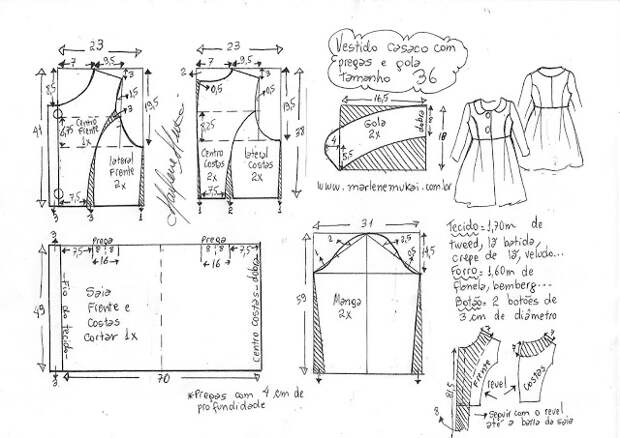 Vestido casaco com
pregas e gola
Tamanho 36
23
7 9,5
3
8,5
1,5
3
19,5
41
6,75
Centro
Frente
1x
lateral
Frente
2x
7,5
3 3 1
Marlene Mukai
23
7 9,5
2
3
0,5
0,5
19,5
38
8,25
Centro
Costas
2x
lateral
Costas
2x
7,5
2 2 1
16,5
Gola
2x
dobra
4
5,5
18
www.marlenemukai.com.br
Tecido = 1,70m de
tweed, lã batida,
crepe de lã, veludo...
Forro = 1,60m de
flanela, bemberg...
Botão = 2 botões de
3 cm de diâmetro
3
Prega
7,5 8 8
16
Prega
8 8 7,5
16
49
Fio do tecido
Saia
Frente e
Costas
Cortar 1x
centro costas - dobra
3
70
*Pregas com 4 cm de
profundidade
31
2
2,5
0,5
14,5
59
Manga
2x
3 3
7
7
Frente
Costas
revel
81,5
8
Seguir com o revel
até a barra da saia